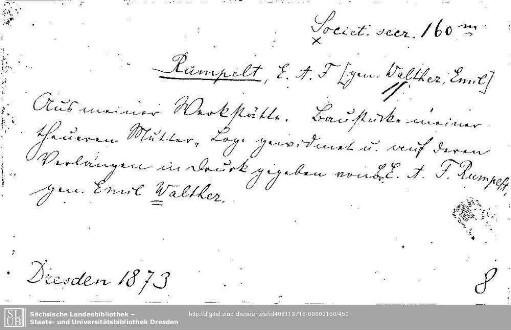 Societ. secr. 160 m
x
Rumpelt, E. A. F [gen. Walther, Emil]
Aus meiner Werkstätte. Baustücke meiner
theueren Mutter-Loge gewidmet u. auf deren
Verlangen in Druck gegeben von E. A. F. Rumpelt
gen. Emil Walther.
Dresden 1873
8
SLUB
Sächsische Landesbibliothek –
Staats- und Universitätsbibliothek Dresden